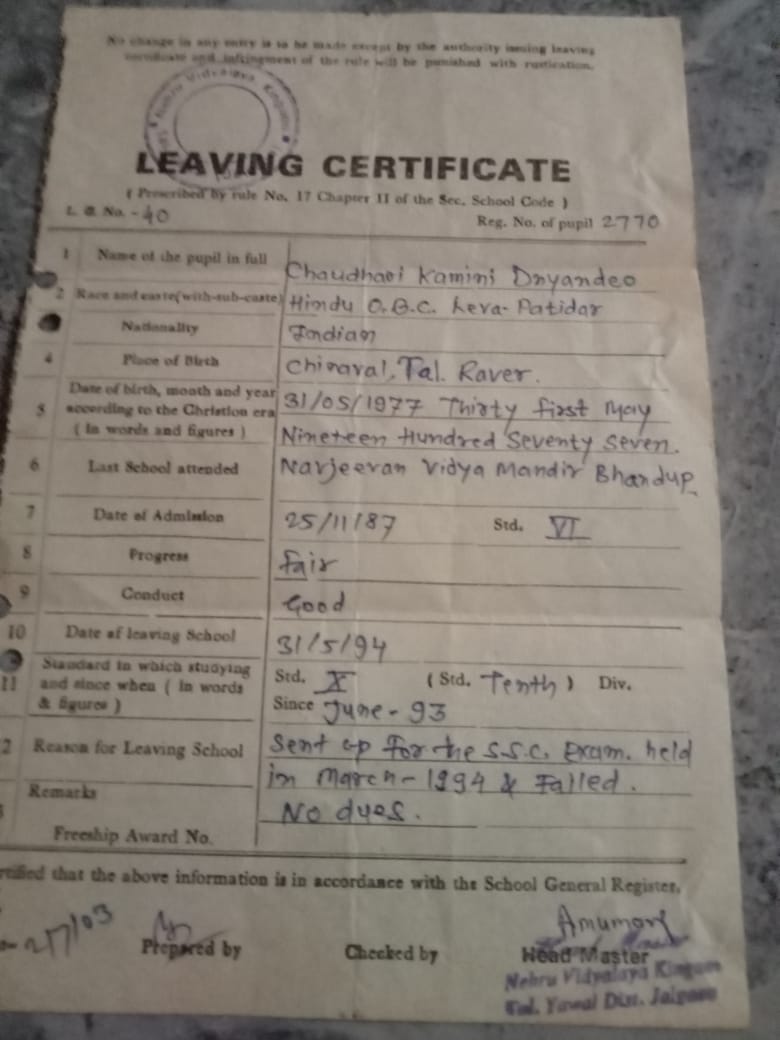 No change in any entry is to be made except by the authority issuing leaving
certificate and infringment of the rule will be punished with rustication.
Nehru Vidyalaya, Kingaon
LEAVING CERTIFICATE
( Prescribed by rule No. 17 Chapter II of the Sec. School Code )
L. C. No. - 40 Reg. No. of pupil 2770
1 Name of the pupil in full Chaudhari Kamini Dnyandeo
2 Race and caste(with-sub-caste) Hindu O.B.C. Leva-Patidar
Nationality Indian
4 Place of Birth Chinaval, Tal. Raver.
5 Date of birth, month and year according to the Christion era ( In words and figures ) 31/05/1977 Thirty first May
Nineteen Hundred Seventy Seven.
6 Last School attended Navjeevan Vidya Mandir Bhandup
7 Date of Admission 25/11/87 Std. VI
8 Progress Fair
9 Conduct Good
10 Date of leaving School 31/5/94
11 Standard in which studying and since when ( In words & figures ) Std. X ( Std. Tenth ) Div.
Since June - 93
2 Reason for Leaving School Sent up for the S.S.C. Exam. held
in March - 1994 & Failed.
Remarks No dues.
Freeship Award No.
rtified that the above information is in accordance with the School General Register.
2/7/03
Prepared by Checked by Head Master
Nehru Vidyalaya Kingaon
Tal. Yawal Dist. Jalgaon